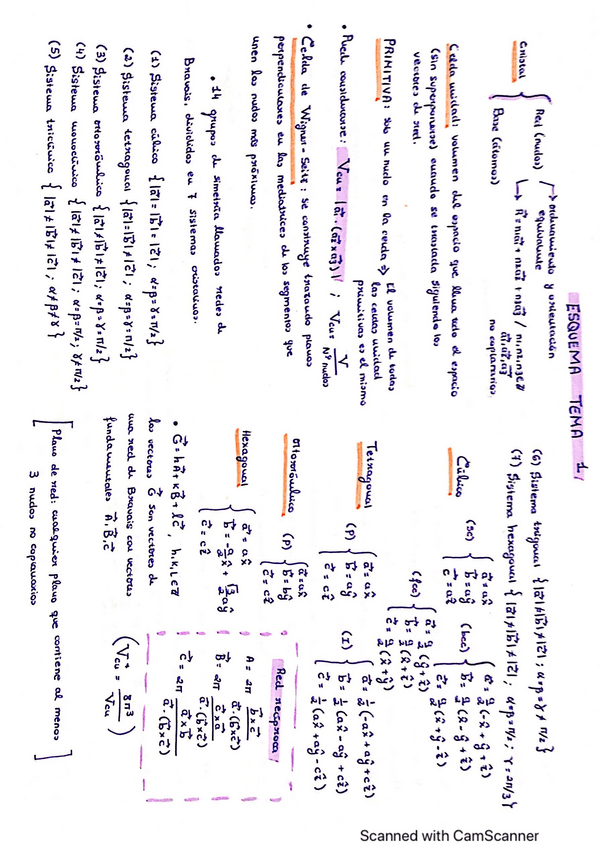 ESQUEMA TEMA 1
Cristal { Red (nudos) → ordenamiento y orientación equivalente
↳ R⃗ = n₁a⃗₁ + n₂a⃗₂ + n₃a⃗₃ / n₁, n₂, n₃ ∈ ℤ
a⃗₁, a⃗₂, a⃗₃ no coplanarios.
Base (átomos)
Celda unidad: volumen del espacio que llena todo el espacio
(sin superponerse) cuando se traslada siguiendo los
vectores de red.
PRIMITIVA: sólo un nudo en la celda ⇒ El volumen de todas
las celdas unidad
primitivas es el mismo
• Puede considerarse: Vcu = |a⃗₁·(a⃗₂×a⃗₃)| ; Vcu = V / Nº nudos
• Celda de Wigner-Seitz: se construye trazando planos
perpendiculares en las mediatrices de los segmentos que
unen los nudos más próximos.
• 14 grupos de simetría llamados redes de
Bravais, divididos en 7 sistemas cristalinos.
(1) Sistema cúbico { |a⃗|=|b⃗|=|c⃗| ; α=β=γ=π/2 }
(2) Sistema tetragonal { |a⃗|=|b⃗|≠|c⃗| ; α=β=γ=π/2 }
(3) Sistema ortorrómbico { |a⃗|≠|b⃗|≠|c⃗| ; α=β=γ=π/2 }
(4) Sistema monoclínico { |a⃗|≠|b⃗|≠|c⃗| ; α=β=π/2 ; γ≠π/2 }
(5) Sistema triclínico { |a⃗|≠|b⃗|≠|c⃗| ; α≠β≠γ }
(6) Sistema trigonal { |a⃗|≠|b⃗|≠|c⃗| ; α=β=γ≠π/2 }
(7) Sistema hexagonal { |a⃗|≠|b⃗|≠|c⃗| ; α=β=π/2 ; γ=2π/3 }
Cúbico
(sc) { a⃗=ax̂
b⃗=aŷ
c⃗=aẑ
(bcc) { a⃗=a/2(-x̂+ŷ+ẑ)
b⃗=a/2(x̂-ŷ+ẑ)
c⃗=a/2(x̂+ŷ-ẑ)
(fcc) { a⃗=a/2(ŷ+ẑ)
b⃗=a/2(x̂+ẑ)
c⃗=a/2(x̂+ŷ)
Tetragonal
(P) { a⃗=ax̂
b⃗=aŷ
c⃗=cẑ
(I) { a⃗=1/2(-ax̂+aŷ+cẑ)
b⃗=1/2(ax̂-aŷ+cẑ)
c⃗=1/2(ax̂+aŷ-cẑ)
Ortorrómbico
(P) { a⃗=ax̂
b⃗=bŷ
c⃗=cẑ
Hexagonal
{ a⃗=ax̂
b⃗=-a/2 x̂+√3/2 aŷ
c⃗=cẑ
Red recíproca
A = 2π b⃗×c⃗ / a⃗·(b⃗×c⃗)
B⃗ = 2π c⃗×a⃗ / a⃗·(b⃗×c⃗)
c⃗ = 2π a⃗×b⃗ / a⃗·(b⃗×c⃗)
• G⃗=hA⃗+kB⃗+lc⃗ , h,k,l ∈ ℤ
los vectores G⃗ son vectores de
una red de Bravais con vectores
fundamentales A⃗, B⃗, c⃗
(Vcu* = 8π³ / Vcu)
[ Plano de red: cualquier plano que contiene al menos
3 nudos no coplanarios ]
Scanned with CamScanner